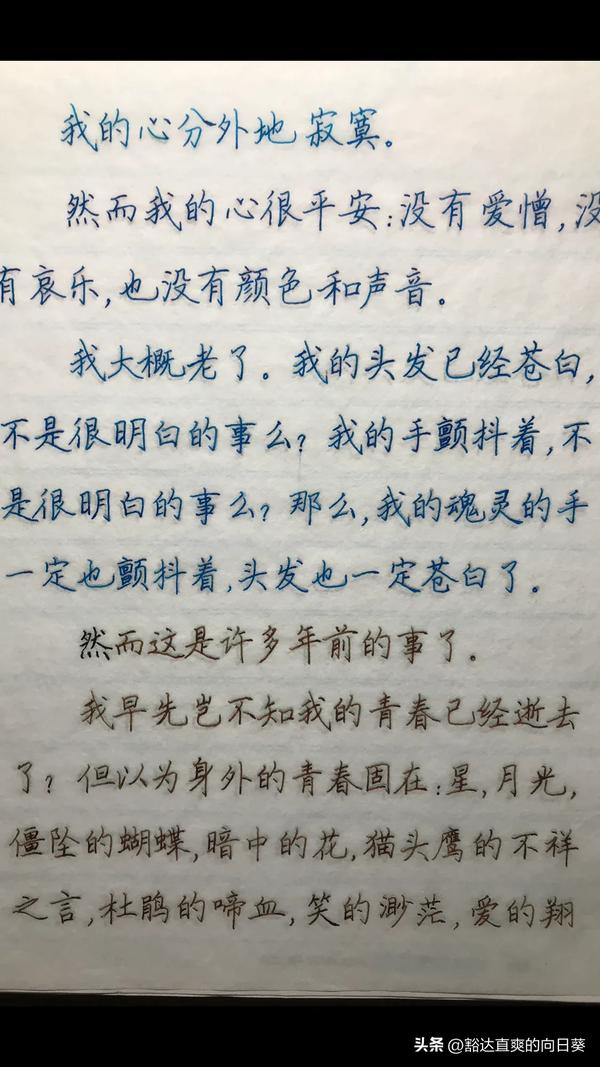 我的心分外地寂寞。
然而我的心很平安:没有爱憎,没
有哀乐,也没有颜色和声音。
我大概老了。我的头发已经苍白,
不是很明白的事么?我的手颤抖着,不
是很明白的事么?那么,我的魂灵的手
一定也颤抖着,头发也一定苍白了。
然而这是许多年前的事了。
我早先岂不知我的青春已经逝去
了?但以为身外的青春固在:星,月光,
僵坠的蝴蝶,暗中的花,猫头鹰的不祥
之言,杜鹃的啼血,笑的渺茫,爱的翔
头条 @豁达直爽的向日葵